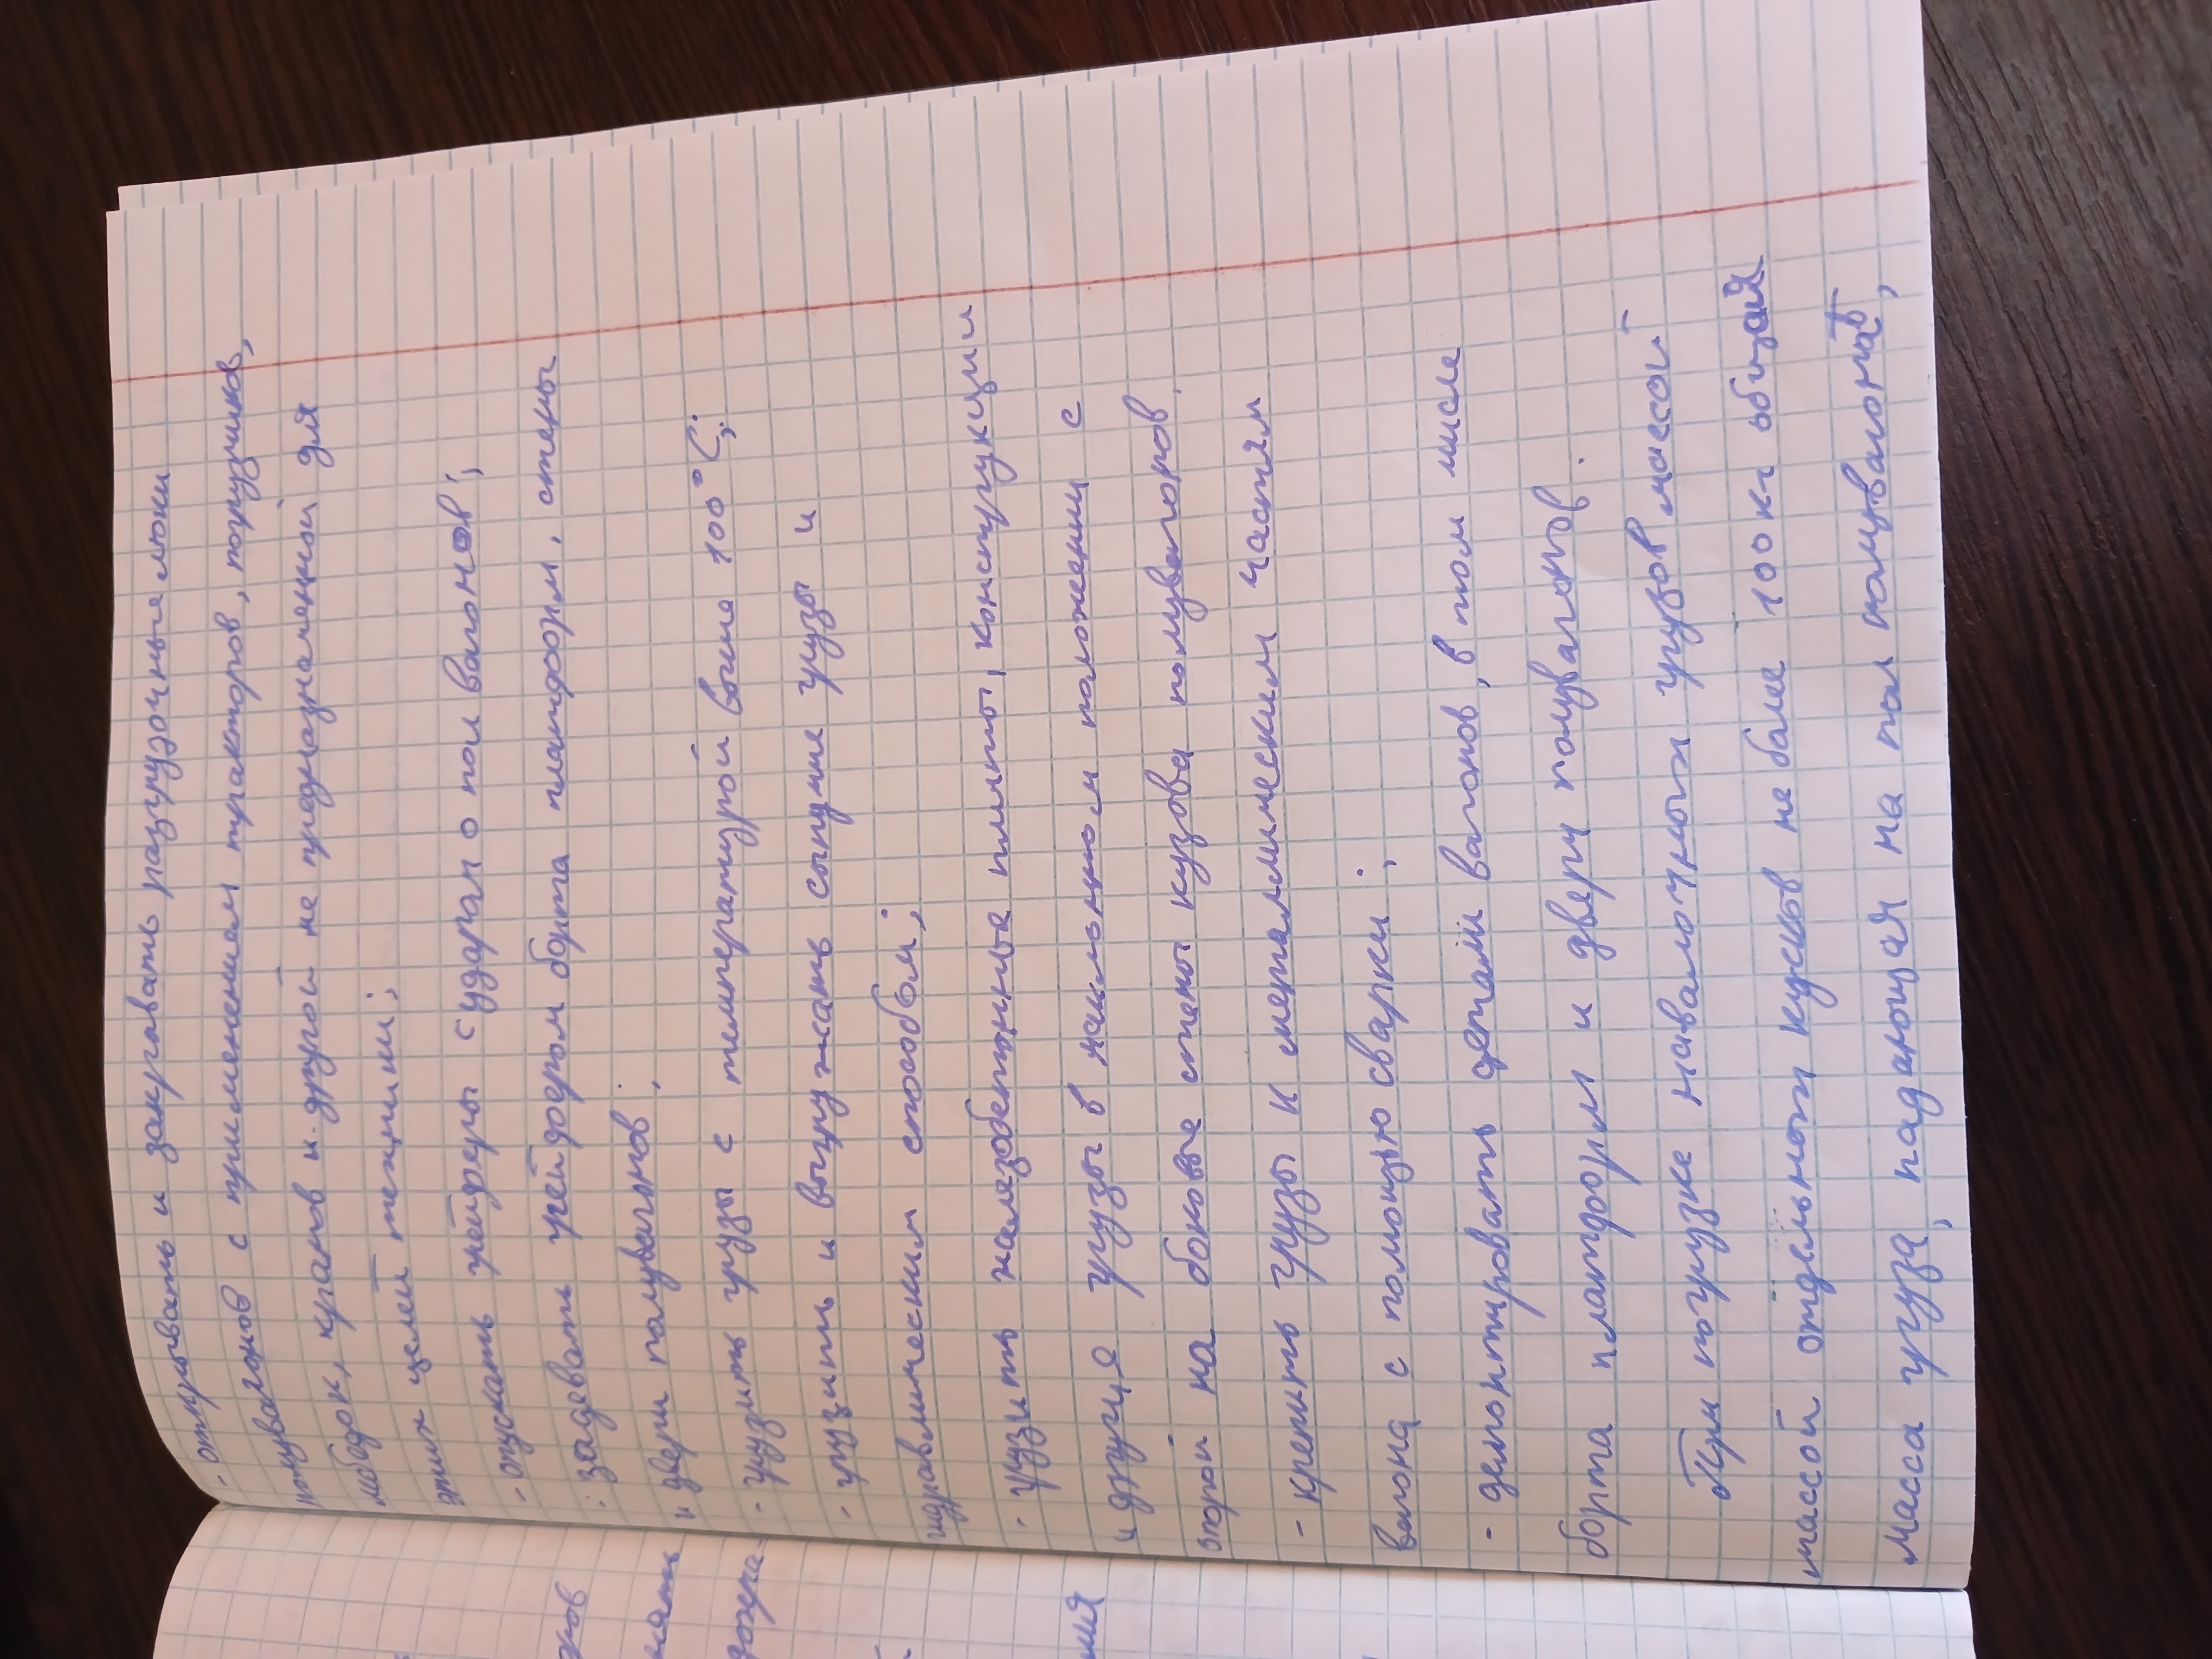 - открывать и закрывать разгрузочные люки
полувагонов с применением тракторов, погрузчиков,
лебедок, кранов и другой не предназначенной для
этих целей техники;
- опускать грейферы с ударом о пол вагонов;
- задевать грейфером борта платформ, стены
и двери полувагонов;
- грузить грузы с температурой выше 100°С;
- грузить и выгружать сыпучие грузы и
гидравлическим способом;
- грузить железобетонные плиты, конструкции
и другие грузы в наклонном положении с
опорой на боковые стены кузова полувагонов.
- крепить грузы к металлическим частям
вагона с помощью сварки;
- демонтировать детали вагонов, в том числе
борта платформ и двери полувагонов.
При погрузке навалочных грузов массой
массой отдельных кусков не более 100 кг общая
масса груза, падающая на пол полувагона,
жов
нять
догра-
ния